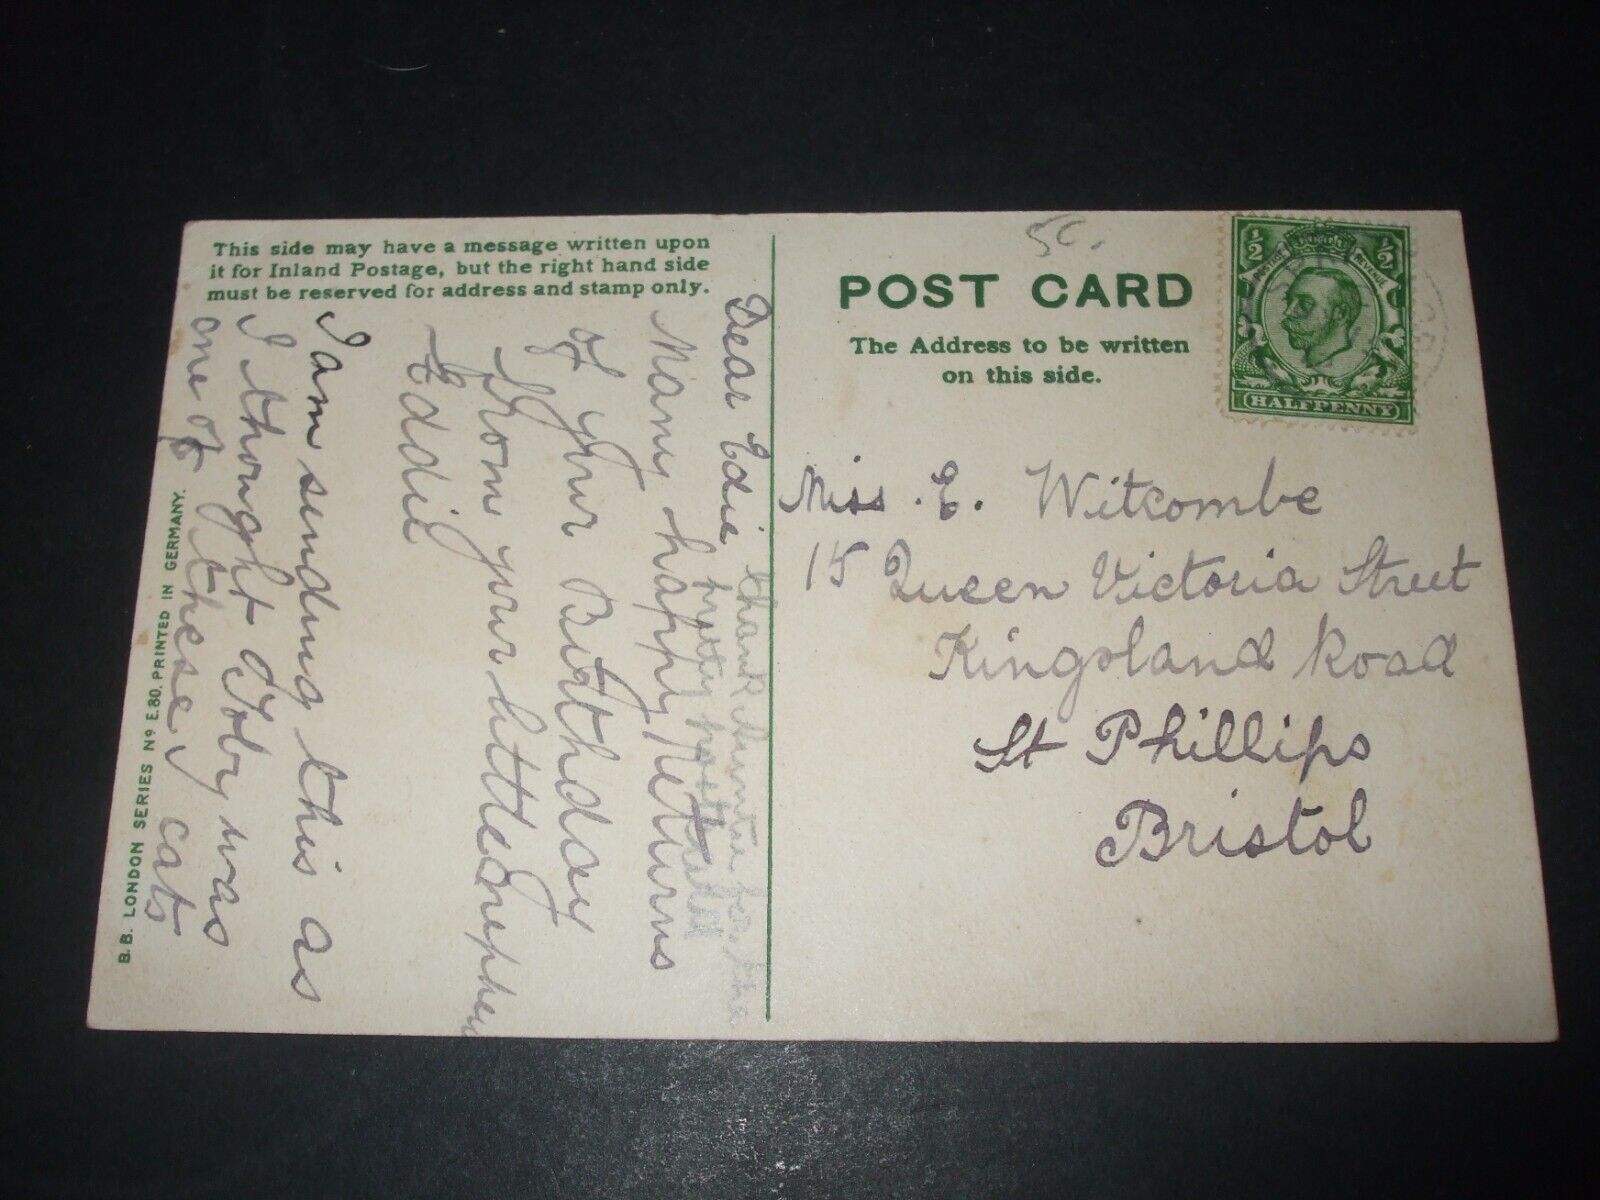 This side may have a message written upon
it for Inland Postage, but the right hand side
must be reserved for address and stamp only.
Dear Edie
Many happy Returns
of your Birthday
from your little nephew
Eddie
I am sending this as
I thought Toby was
one of these cats
thank Auntie for the
pretty postcard
B.B. LONDON SERIES Nº E.80. PRINTED IN GERMANY.
5c.
POST CARD
The Address to be written
on this side.
½ ½
POSTAGE REVENUE
HALFPENNY
Miss. E. Witcombe
15 Queen Victoria Street
Kingsland Road
St Phillips
Bristol